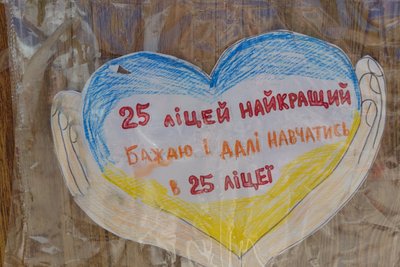 25 ліцей НАЙКРАЩИЙ
БАЖАЮ І ДАЛІ НАВЧАТИСЬ
в 25 ліцеї